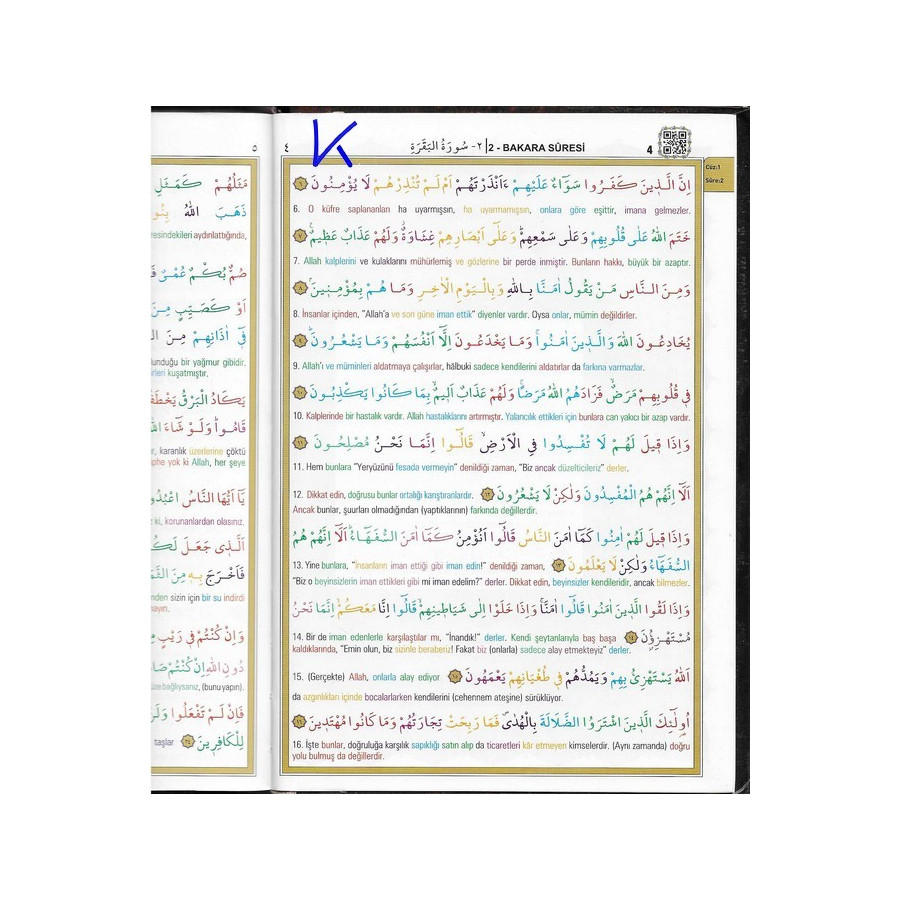 4
2 - BAKARA SÛRESİ | ٢- سُورَةُ الْبَقَرَةِ
٤
Cüz:1
Sûre:2
اِنَّ الَّذ۪ينَ كَفَرُوا سَوَٓاءٌ عَلَيْهِمْ ءَاَنْذَرْتَهُمْ اَمْ لَمْ تُنْذِرْهُمْ لَا يُؤْمِنُونَ ﴿٦﴾
6. O küfre saplananları ha uyarmışsın, ha uyarmamışsın, onlara göre eşittir, imana gelmezler.
خَتَمَ اللّٰهُ عَلٰى قُلُوبِهِمْ وَعَلٰى سَمْعِهِمْۜ وَعَلٰٓى اَبْصَارِهِمْ غِشَاوَةٌۘ وَلَهُمْ عَذَابٌ عَظ۪يمٌ۟ ﴿٧﴾
7. Allah kalplerini ve kulaklarını mühürlemiş ve gözlerine bir perde inmiştir. Bunların hakkı, büyük bir azaptır.
وَمِنَ النَّاسِ مَنْ يَقُولُ اٰمَنَّا بِاللّٰهِ وَبِالْيَوْمِ الْاٰخِرِ وَمَا هُمْ بِمُؤْمِن۪ينَۢ ﴿٨﴾
8. İnsanlar içinden, "Allah'a ve son güne iman ettik" diyenler vardır. Oysa onlar, mümin değildirler.
يُخَادِعُونَ اللّٰهَ وَالَّذ۪ينَ اٰمَنُواۚ وَمَا يَخْدَعُونَ اِلَّٓا اَنْفُسَهُمْ وَمَا يَشْعُرُونَۜ ﴿٩﴾
9. Allah'ı ve müminleri aldatmaya çalışırlar, hâlbuki sadece kendilerini aldatırlar da farkına varmazlar.
ف۪ي قُلُوبِهِمْ مَرَضٌۙ فَزَادَهُمُ اللّٰهُ مَرَضًاۚ وَلَهُمْ عَذَابٌ اَل۪يمٌۙ بِمَا كَانُوا يَكْذِبُونَ ﴿١٠﴾
10. Kalplerinde bir hastalık vardır. Allah hastalıklarını artırmıştır. Yalancılık ettikleri için bunlara can yakıcı bir azap vardır.
وَاِذَا ق۪يلَ لَهُمْ لَا تُفْسِدُوا فِي الْاَرْضِۙ قَالُٓوا اِنَّمَا نَحْنُ مُصْلِحُونَ ﴿١١﴾
11. Hem bunlara "Yeryüzünü fesada vermeyin" denildiği zaman, "Biz ancak düzelticileriz" derler.
اَلَٓا اِنَّهُمْ هُمُ الْمُفْسِدُونَ وَلٰكِنْ لَا يَشْعُرُونَ ﴿١٢﴾ 12. Dikkat edin, doğrusu bunlar ortalığı karıştıranlardır.
Ancak bunlar, şuurları olmadığından (yaptıklarının) farkında değillerdir.
وَاِذَا ق۪يلَ لَهُمْ اٰمِنُوا كَمَٓا اٰمَنَ النَّاسُ قَالُٓوا اَنُؤْمِنُ كَمَٓا اٰمَنَ السُّفَهَٓاءُۜ اَلَٓا اِنَّهُمْ هُمُ
السُّفَهَٓاءُ وَلٰكِنْ لَا يَعْلَمُونَ ﴿١٣﴾ 13. Yine bunlara, "İnsanların iman ettiği gibi iman edin!" denildiği zaman,
"Biz o beyinsizlerin iman ettikleri gibi mi iman edelim?" derler. Dikkat edin, beyinsizler kendileridir, ancak bilmezler.
وَاِذَا لَقُوا الَّذ۪ينَ اٰمَنُوا قَالُٓوا اٰمَنَّاۚ وَاِذَا خَلَوْا اِلٰى شَيَاط۪ينِهِمْۙ قَالُٓوا اِنَّا مَعَكُمْۙ اِنَّمَا نَحْنُ
مُسْتَهْزِؤُ۫نَ ﴿١٤﴾ 14. Bir de iman edenlerle karşılaştılar mı, "İnandık!" derler. Kendi şeytanlarıyla baş başa
kaldıklarında, "Emin olun, biz sizinle beraberiz! Fakat biz (onlarla) sadece alay etmekteyiz" derler.
اَللّٰهُ يَسْتَهْزِئُ بِهِمْ وَيَمُدُّهُمْ ف۪ي طُغْيَانِهِمْ يَعْمَهُونَ ﴿١٥﴾ 15. (Gerçekte) Allah, onlarla alay ediyor
da azgınlıkları içinde bocalarlarken kendilerini (cehennem ateşine) sürüklüyor.
اُو۬لٰٓئِكَ الَّذ۪ينَ اشْتَرَوُا الضَّلَالَةَ بِالْهُدٰىۖ فَمَا رَبِحَتْ تِجَارَتُهُمْ وَمَا كَانُوا مُهْتَد۪ينَ ﴿١٦﴾
16. İşte bunlar, doğruluğa karşılık sapıklığı satın alıp da ticaretleri kâr etmeyen kimselerdir. (Aynı zamanda) doğru
yolu bulmuş da değillerdir.
٥
مَثَلُهُمْ كَمَثَلِ
ذَهَبَ اللّٰهُ
resindekileri aydınlattığında,
صُمٌّ بُكْمٌ عُمْيٌ
اَوْ كَصَيِّبٍ مِنَ
ف۪ٓي اٰذَانِهِمْ مِنَ
lunduğu bir yağmur gibidir.
kuşatmıştır.
يَكَادُ الْبَرْقُ
قَامُواۜ وَلَوْ شَٓاءَ
karanlık üzerlerine çöktü
phe yok ki Allah, her şeye
يَٓا اَيُّهَا النَّاسُ
ki, korunanlardan olasınız.
اَلَّذ۪ي جَعَلَ
فَاَخْرَجَ بِه۪ مِنَ
nden sizin için bir su indirdi
وَاِنْ كُنْتُمْ ف۪ي رَيْبٍ
دُونِ اللّٰهِ اِنْ كُنْتُمْ
bağlıysanız, (bunu yapın).
فَاِنْ لَمْ تَفْعَلُوا
لِلْكَافِر۪ينَ ﴿٢٤﴾
taşlar